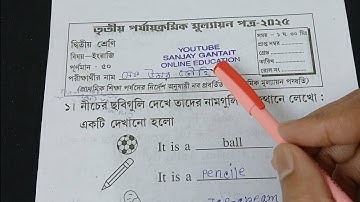 তৃতীয় পর্যায়ক্রমিক মূল্যায়ন পত্র-২০২৫
দ্বিতীয় শ্রেণি
বিষয়-ইংরাজি
পূর্ণমান - ৫০
সময় - ১ ঘ. ৩০ মি.
প্রাপ্ত নম্বর
শ্রেণি
তারিখ
রোল নং
YOUTUBE
SANJAY GANTAIT
ONLINE EDUCATION
পরীক্ষার্থীর নাম
(প্রাথমিক শিক্ষা পর্ষদের নির্দেশ অনুযায়ী নব প্রবর্তিত মূল্যায়ন পদ্ধতি)
১। নীচের ছবিগুলি দেখে তাদের নামগুলি খানে লেখো :
একটি দেখানো হলো
It is a ball
It is a pencile